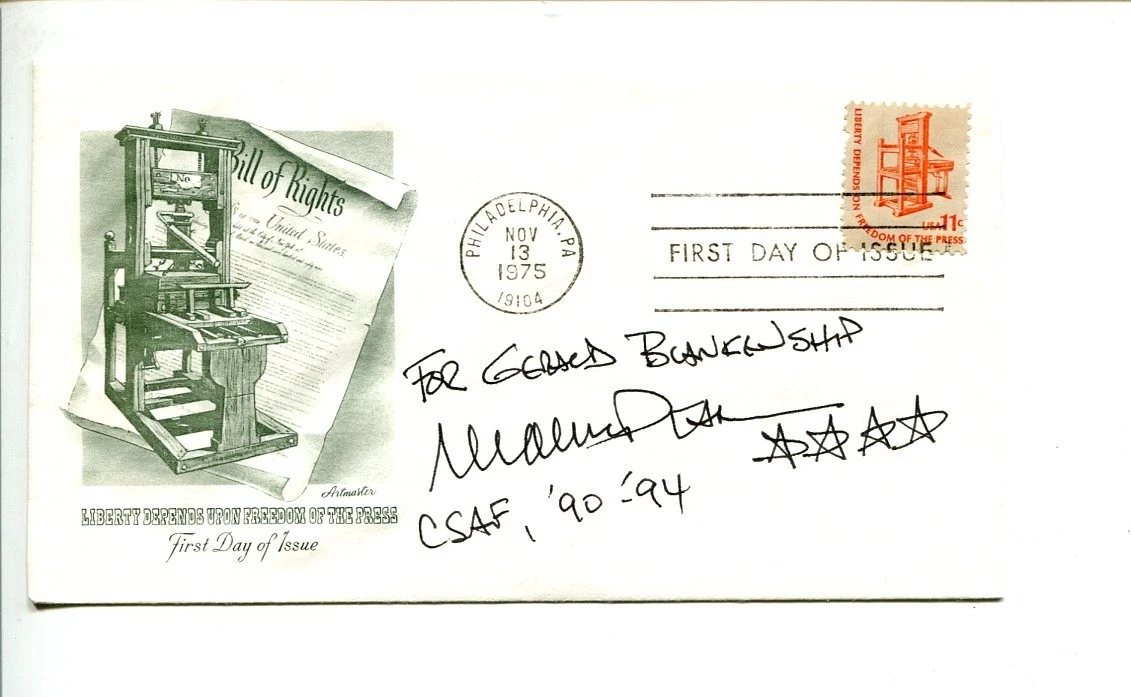 No
Bill of Rights
United States
Artmaster
LIBERTY DEPENDS UPON FREEDOM OF THE PRESS
First Day of Issue
PHILADELPHIA, PA
NOV
13
1975
19104
LIBERTY DEPENDS ON FREEDOM OF THE PRESS
USA 11c
FIRST DAY OF ISSUE
FOR GERALD BLANKENSHIP
CSAF, '90-'94